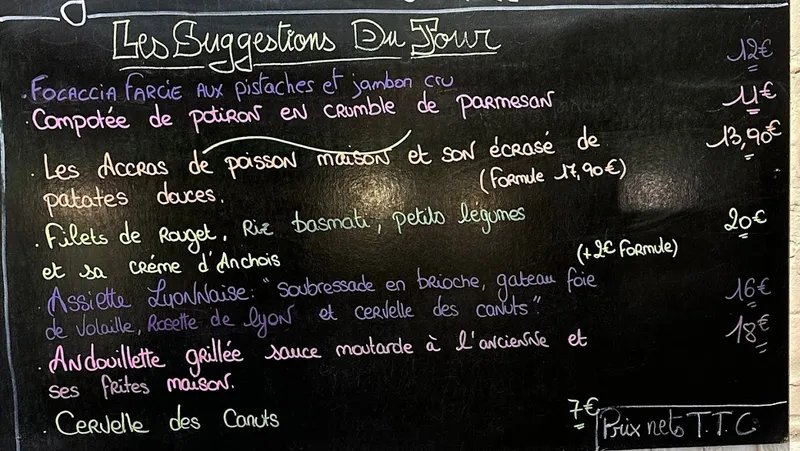 Les Suggestions Du Jour
. Focaccia farcie aux pistaches et jambon cru 12€
. Compotée de potiron en crumble de parmesan 11€
. Les Accras de poisson maison et son écrasé de 13,90€
patates douces. (Formule 17,90€)
. Filets de Rouget, Riz basmati, petits légumes 20€
et sa créme d'Anchois (+2€ Formule)
. Assiette Lyonnaise: "soubressade en brioche, gateau foie 16€
de volaille, Rosette de lyon et cervelle des canuts"
. Andouillette grillée sauce moutarde à l'ancienne et 18€
ses frites maison.
. Cervelle des Canuts 7€
Prix nets T.T.C